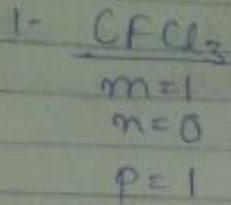 1- CFCl₃
m=1
n=0
p=1